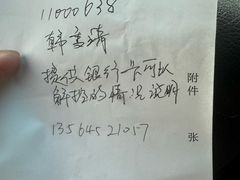 11000638
韩高靖
提供银行卡可以
解控的情况说明
13564521057
附件
张